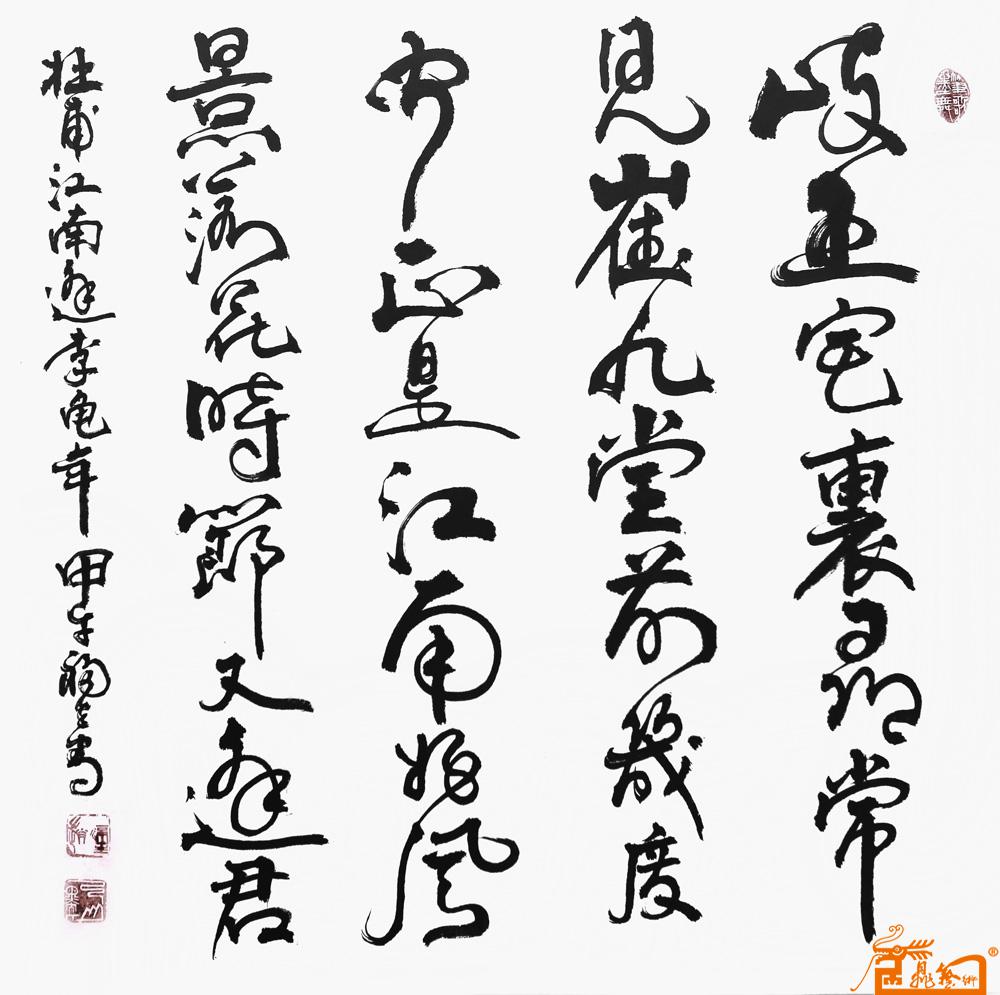 岐王宅裏尋常
見崔九堂前幾度
聞正是江南好風
景落花時節又逢君
杜甫江南逢李龟年 甲午 書